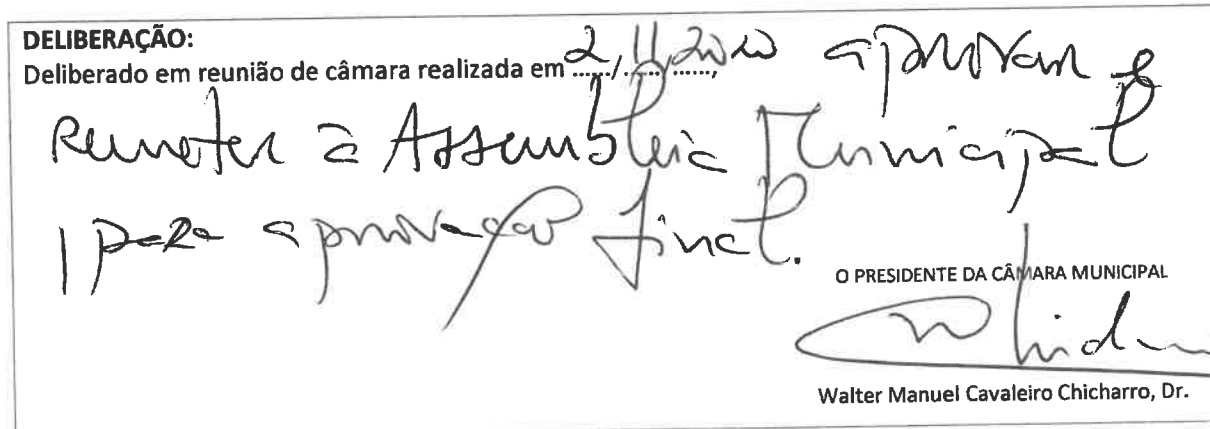 DELIBERAÇÃO:
Deliberado em reunião de câmara realizada em 2/11/2020, aprovar e
remeter à Assembleia Municipal
para aprovação final.
O PRESIDENTE DA CÂMARA MUNICIPAL
Walter Manuel Cavaleiro Chicharro, Dr.